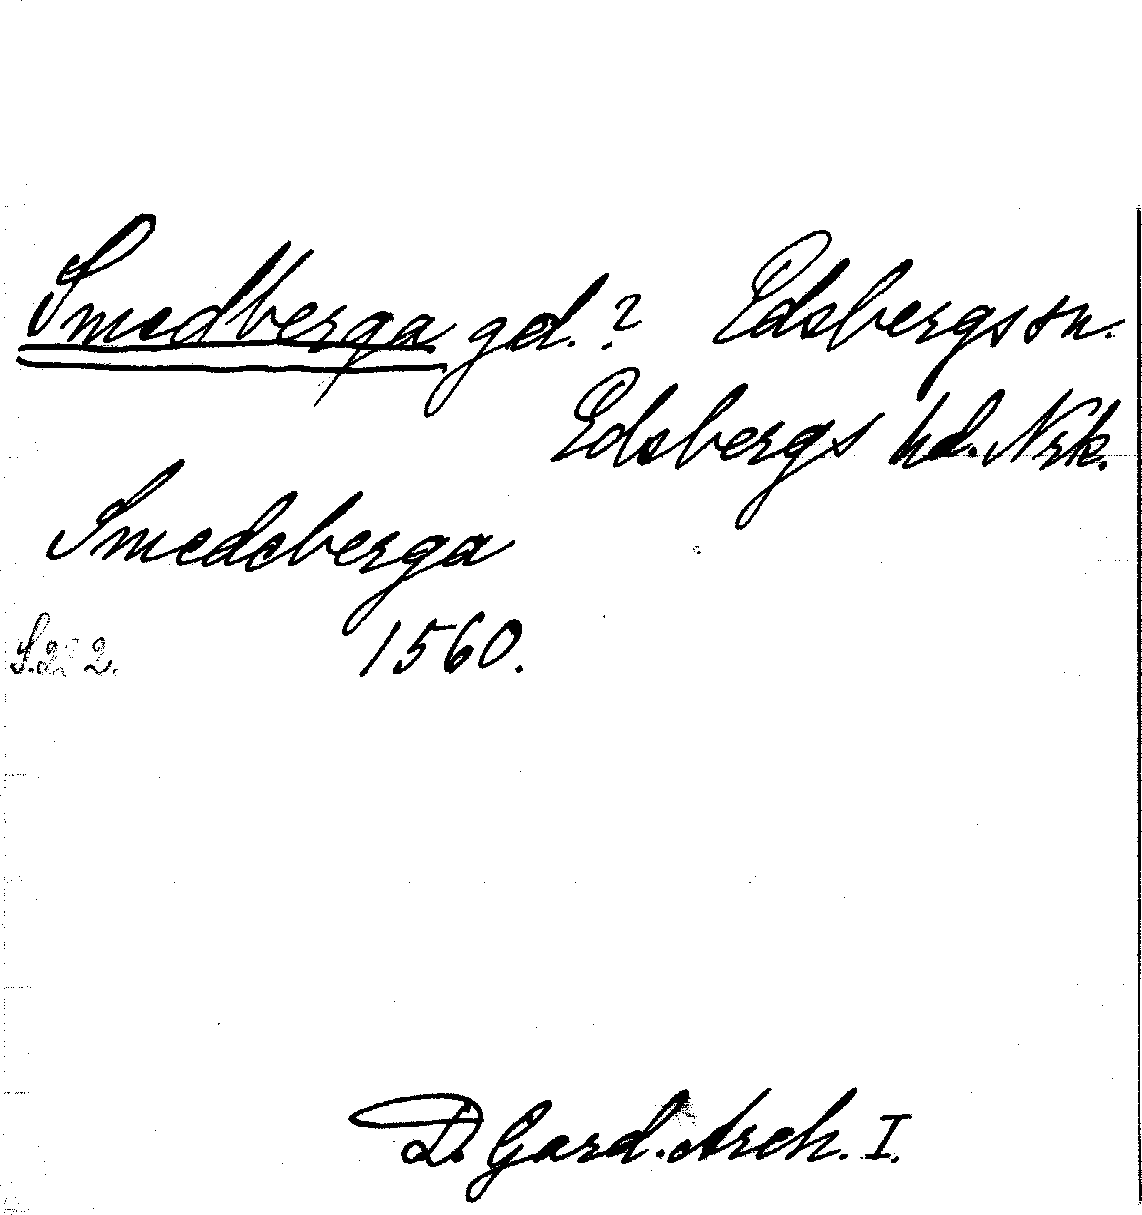 Smedberga gd.? Edsbergs sn.
Edsbergs hd. Nrk.
Smedeberga
1560.
D. Gard. Arch. I.